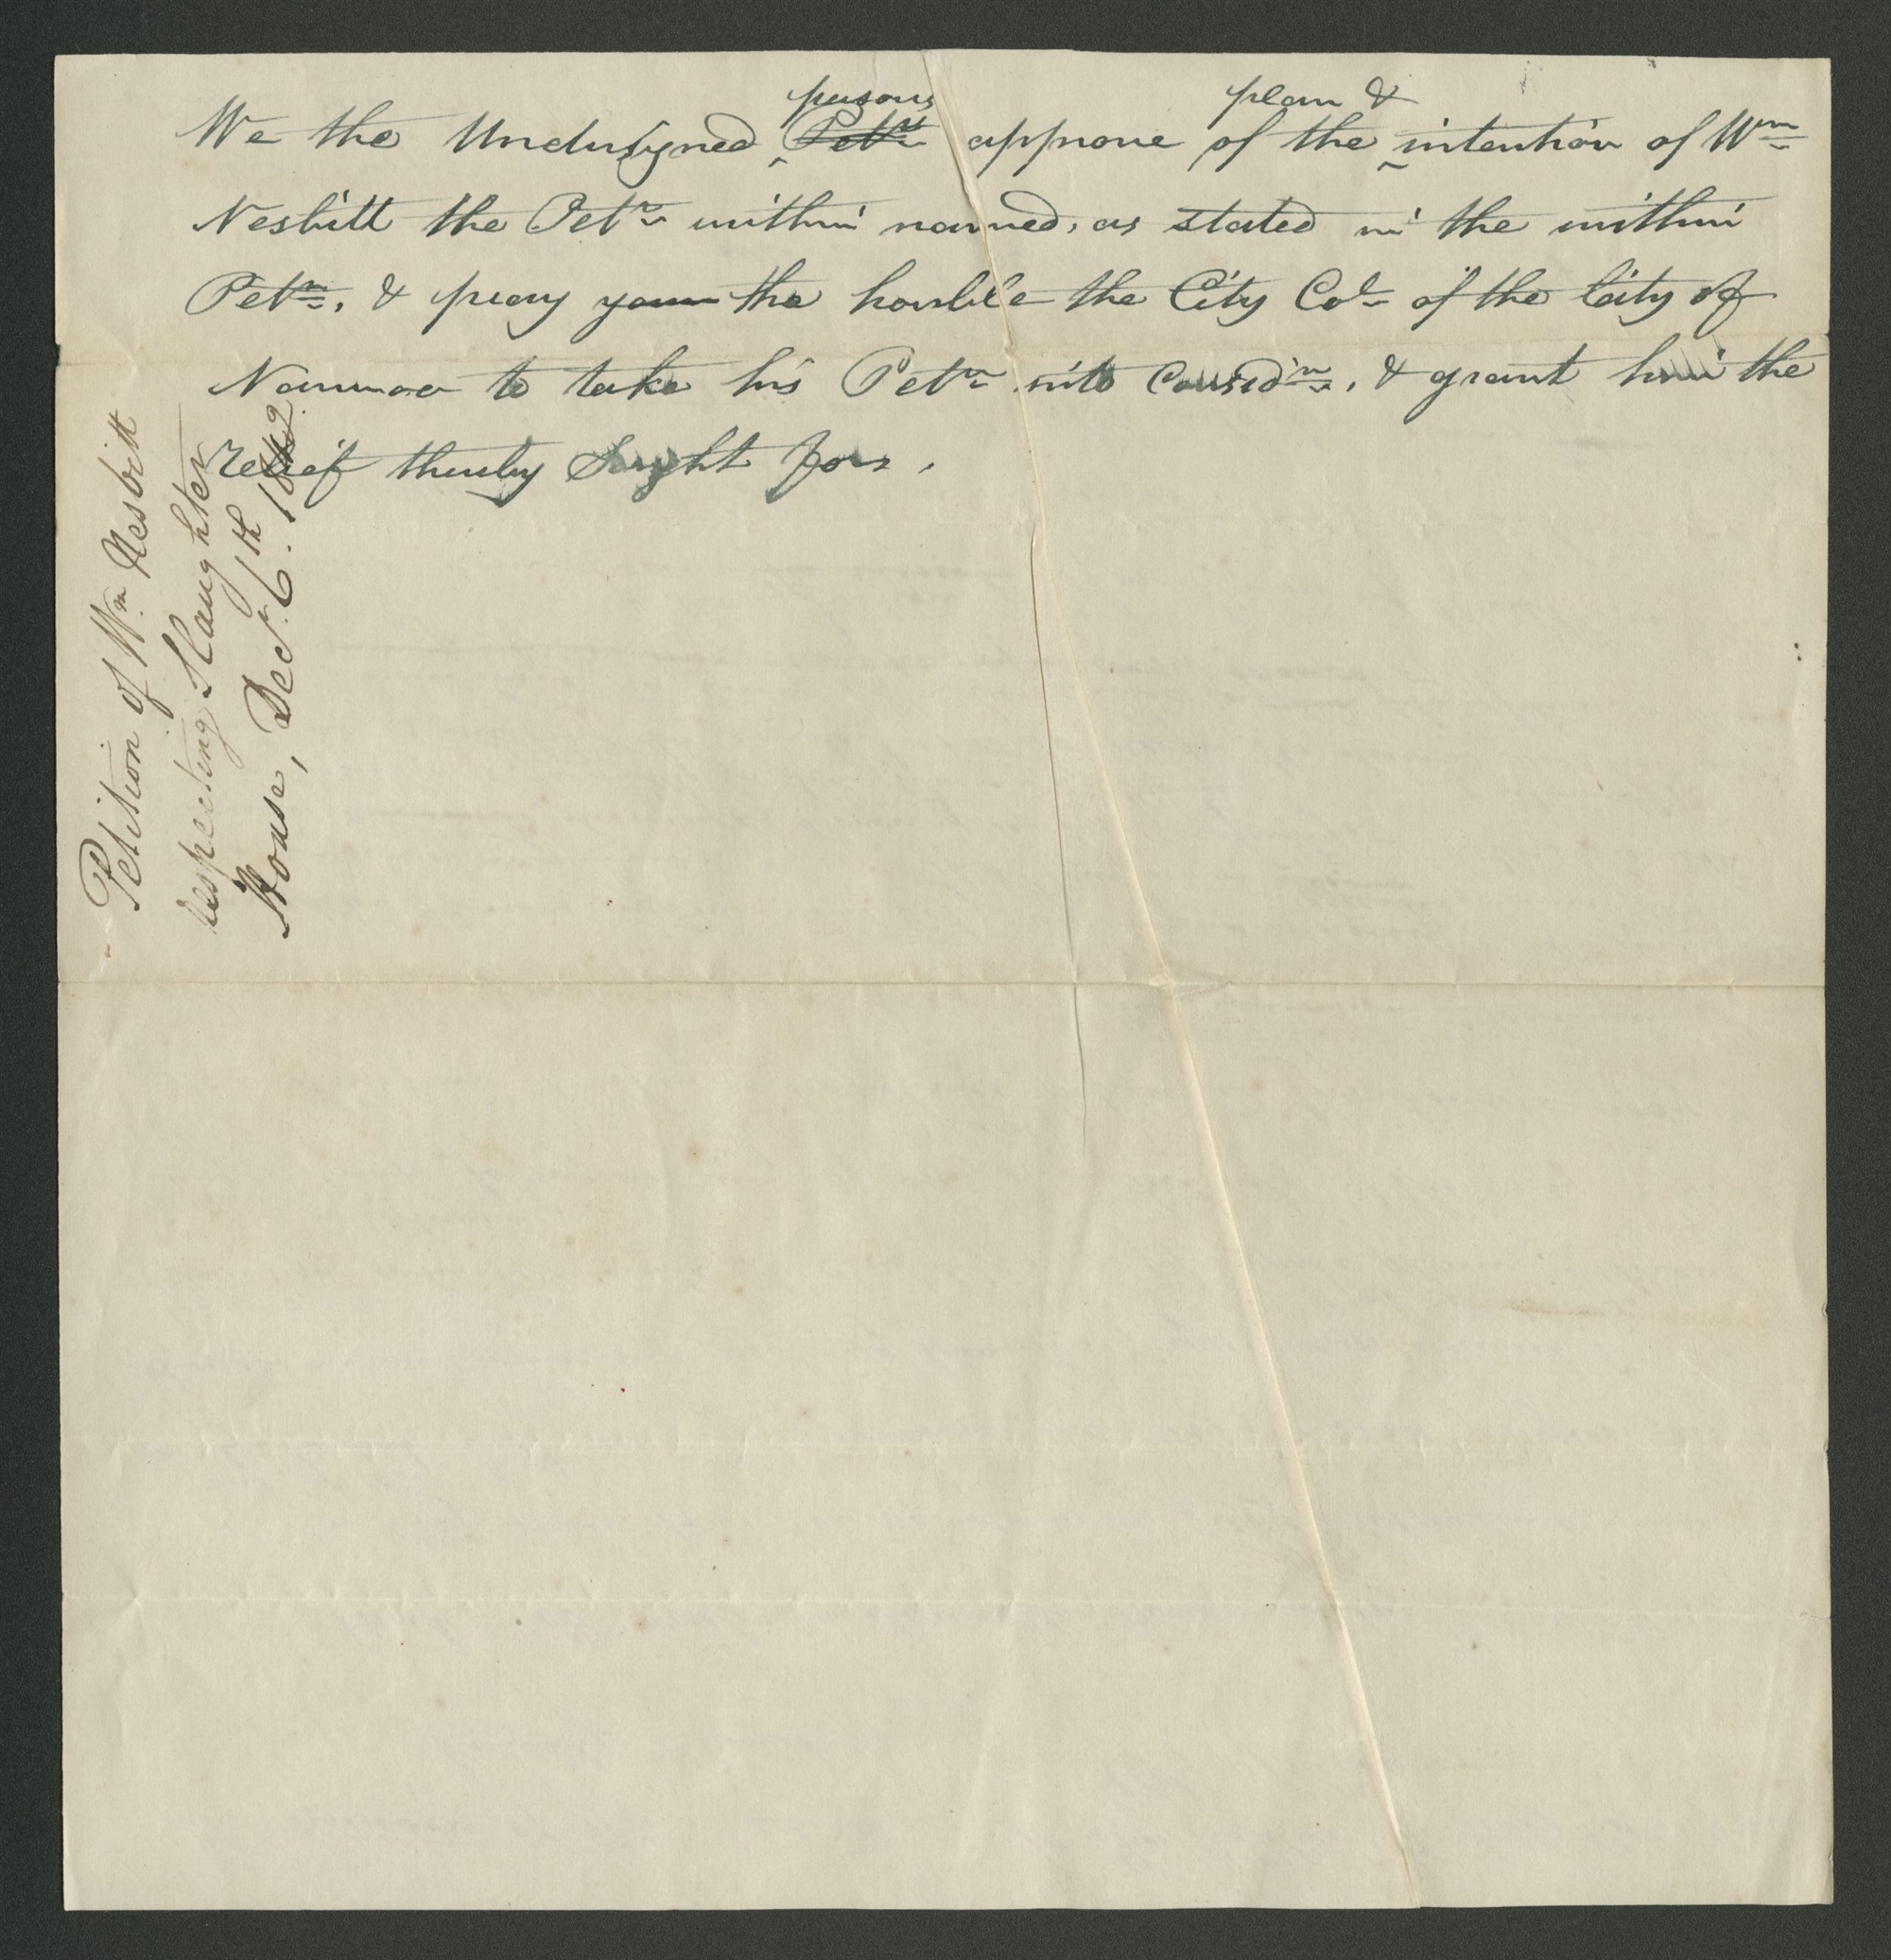 persons plan &
We the Undersigned, Petrs approve of the intention of Wm
Nesbitt the Petr within named, as stated in the within
Petn, & pray your the honble the City Col of the City of
Nanaimo to take his Petn into Considn, & grant him the
relief thereby Sought for.
Petition of Wm Nesbitt
respecting Slaughter
House, Decr 6th 1862